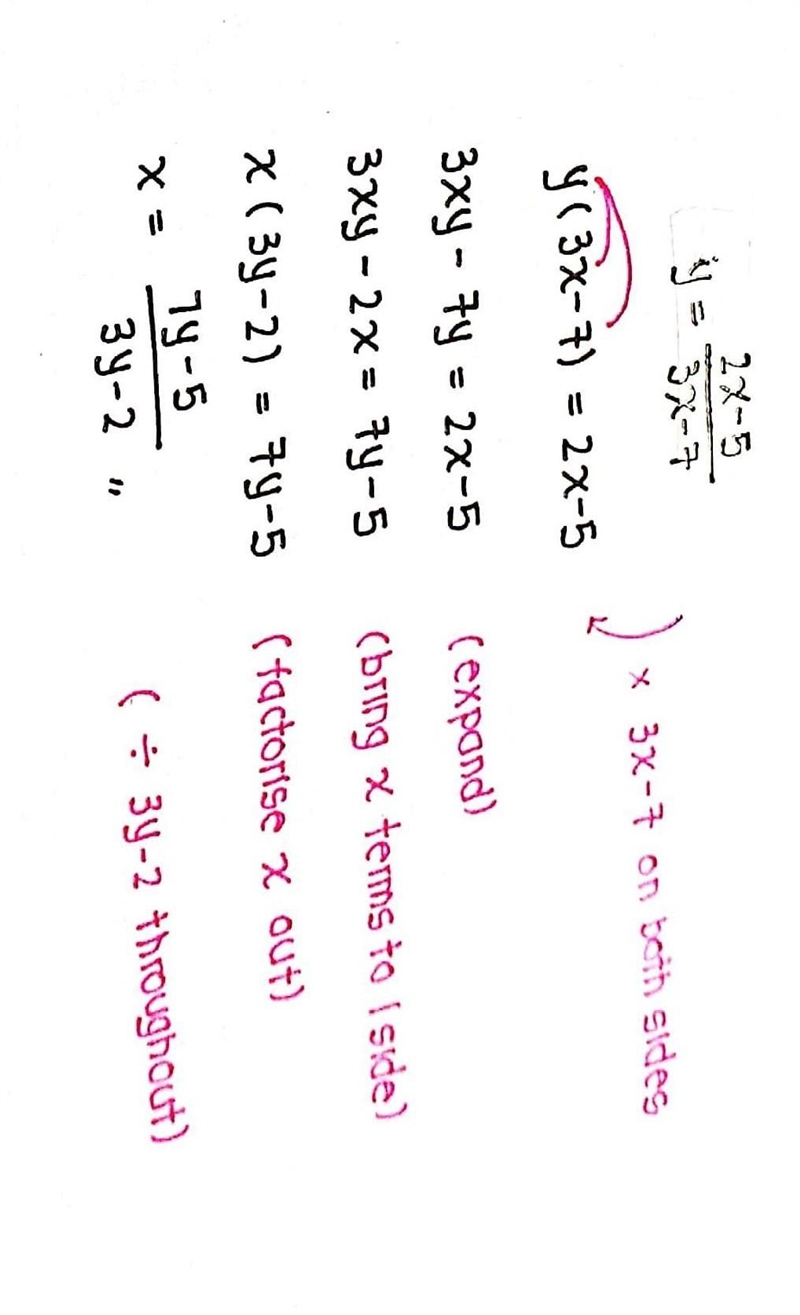 y = \frac{2x-5}{3x-7}
y(3x-7) = 2x-5 ) × 3x-7 on both sides
3xy - 7y = 2x-5 (expand)
3xy - 2x = 7y-5 (bring x terms to 1 side)
x(3y-2) = 7y-5 (factorise x out)
x = \frac{7y-5}{3y-2} " (÷ 3y-2 throughout)